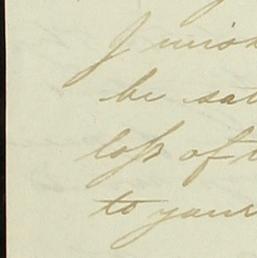 I wish
be sat
loſs of t
to your